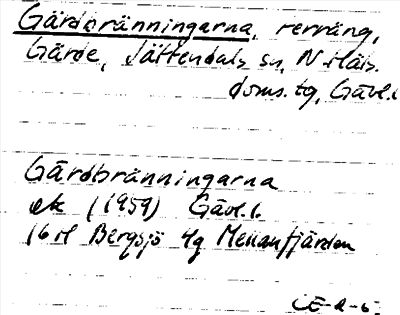 Gärdbränningarna, terräng,
Gärde, Jättendals sn, N. Häls.
doms. tg, Gävl. l.
Gärdbränningarna
ek (1959) Gävl. l.
16 H Bergsjö 4g Mellanfjärden